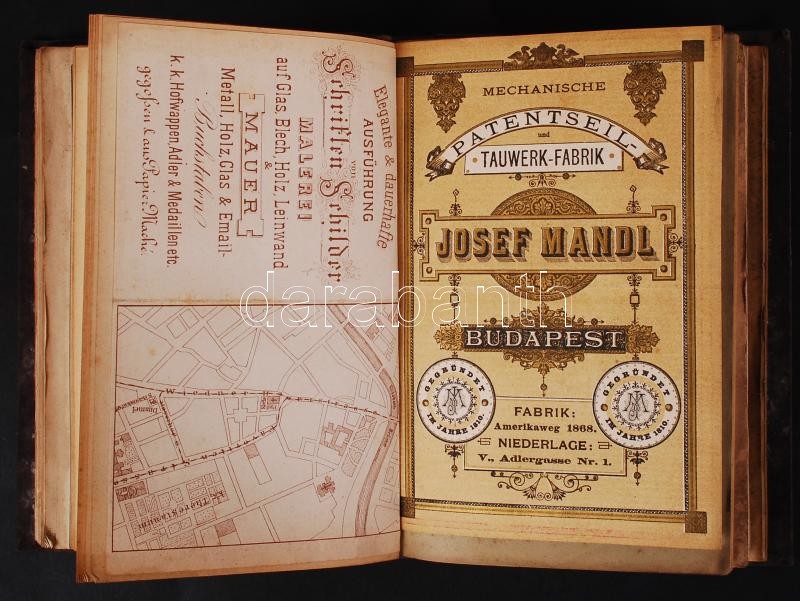 Elegante & dauerhafte
AUSFÜHRUNG
VON
Schriften Schilder
MALEREI
auf Glas, Blech, Holz, Leinwand
&
MAUER
Metall, Holz, Glas & Email-
Buchstaben
k.k. Hofwappen, Adler & Medaillen etc.
gegossen & aus Papier Maché.
Wiedner
k.k. Theresianum
MECHANISCHE
PATENTSEIL-
und
TAUWERK-FABRIK
JOSEF MANDL
BUDAPEST
GEGRÜNDET
IM JAHRE 1810.
GEGRÜNDET
IM JAHRE 1810.
FABRIK:
Amerikaweg 1868.
NIEDERLAGE:
V., Adlergasse Nr. 1.
darabanth